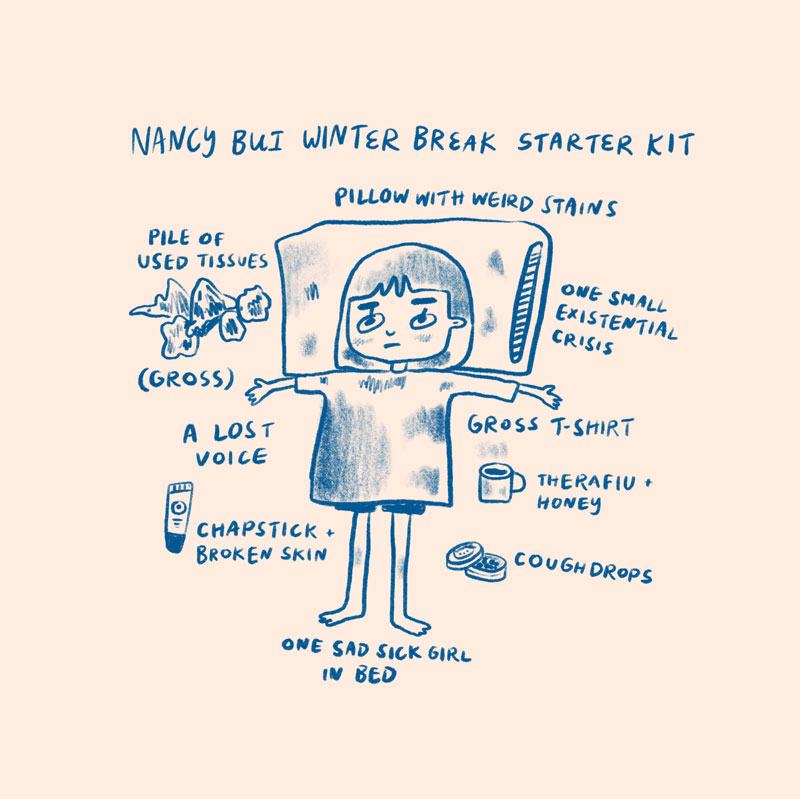 NANCY BUI WINTER BREAK STARTER KIT
PILLOW WITH WEIRD STAINS
PILE OF
USED TISSUES
(GROSS)
ONE SMALL
EXISTENTIAL
CRISIS
A LOST
VOICE
GROSS T-SHIRT
THERAFIU +
HONEY
CHAPSTICK +
BROKEN SKIN
COUGHDROPS
ONE SAD SICK GIRL
IN BED